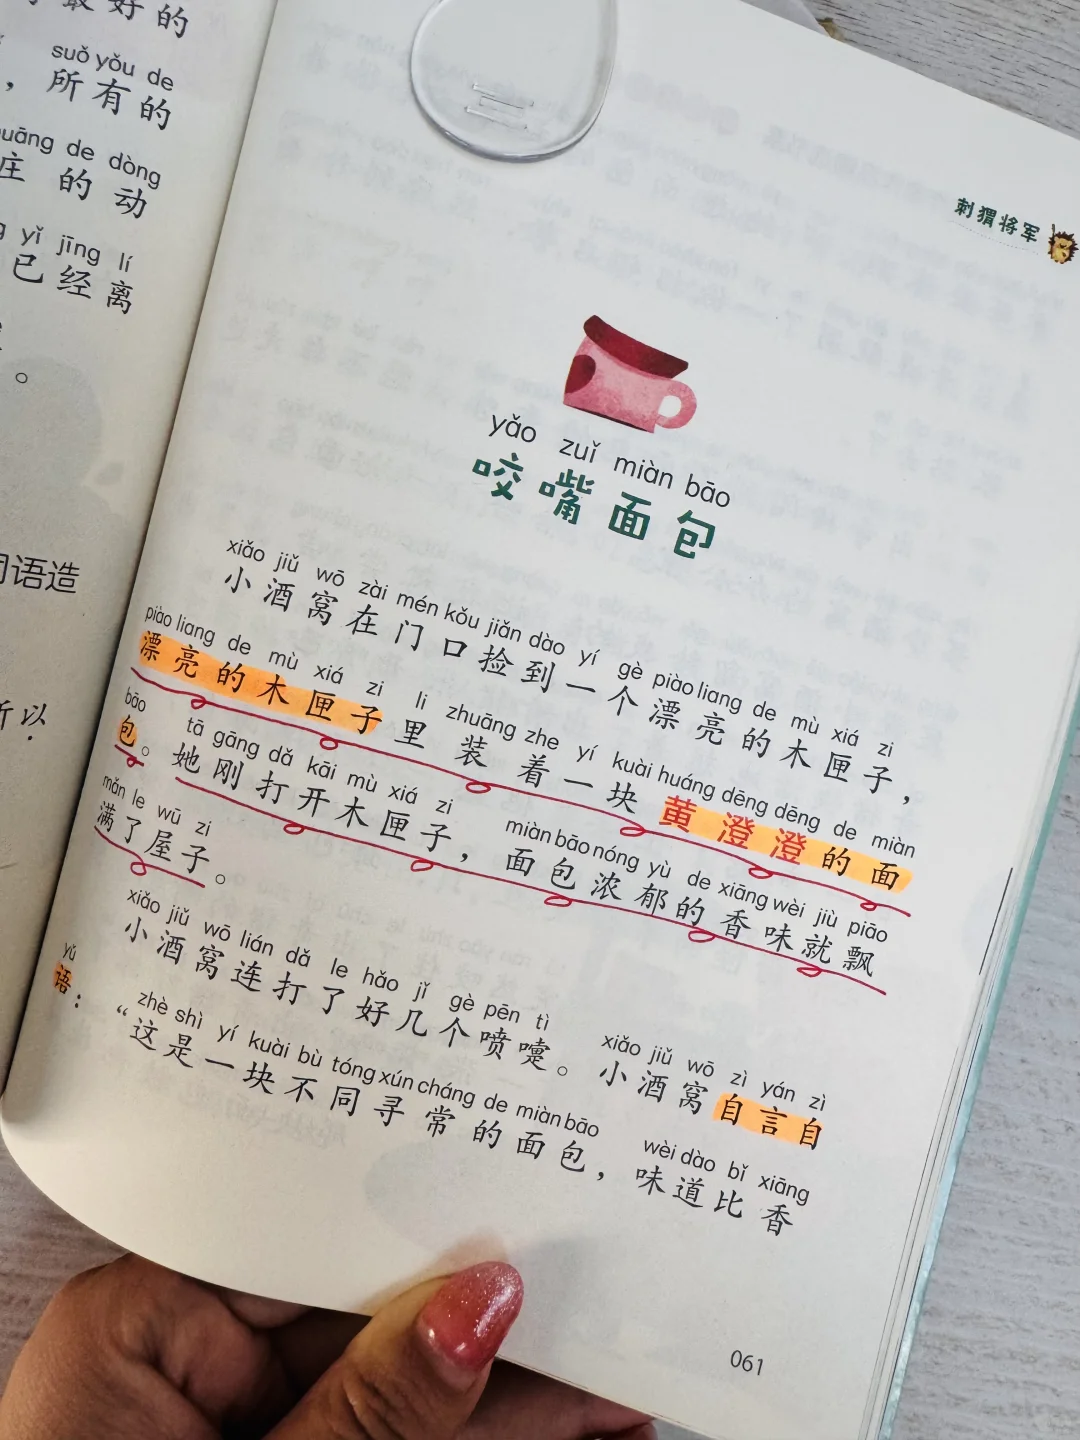 最好的
suǒ yǒu de
，所有的
de dòng
庄的动
yǐ jīng lí
已经离
。
语造
所以
刺猬将军
yǎo zuǐ miàn bāo
咬嘴面包
xiǎo jiǔ wō zài mén kǒu jiǎn dào yí gè piào liang de mù xiá zi
小酒窝在门口捡到一个漂亮的木匣子，
piào liang de mù xiá zi li zhuāng zhe yí kuài huáng dēng dēng de miàn
漂亮的木匣子里装着一块黄澄澄的面
bāo tā gāng dǎ kāi mù xiá zi miàn bāo nóng yù de xiāng wèi jiù piāo
包。她刚打开木匣子，面包浓郁的香味就飘
mǎn le wū zi
满了屋子。
xiǎo jiǔ wō lián dǎ le hǎo jǐ gè pēn tì xiǎo jiǔ wō zì yán zì
小酒窝连打了好几个喷嚏。小酒窝自言自
yǔ zhè shì yí kuài bù tóng xún cháng de miàn bāo wèi dào bǐ xiāng
语：“这是一块不同寻常的面包，味道比香
061